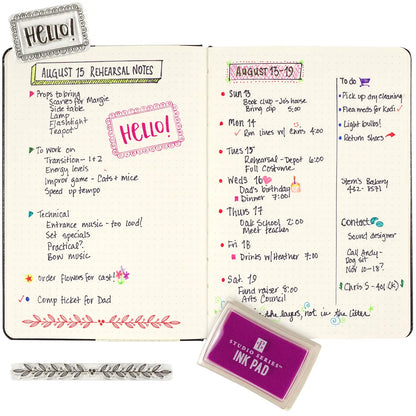 HELLO!
AUGUST 15 REHEARSAL NOTES
Props to bring
Scarves for Margie
Side table
Lamp
Flashlight
Teapot
HELLO!
To work on
Transition - 1+2
Energy levels
Improv game - Cats + mice
Speed up tempo
Technical
Entrance music - too loud!
Set specials
Practical?
Bow music
Order flowers for cast!
Comp ticket for Dad
AUGUST 13-19
SUN 13
Book club - Jo's house
Bring dip 5:00
MON 14
Run lines w/ Chris 4:00
TUES 15
Rehearsal - Depot 6:00
Full Costume
Weds 16
Dad's birthday
Dinner 7:00
THURS 17
Oak School 2:00
Meet teacher
Fri 18
Drinks w/ Heather 7:00
Sat. 19
Fund raiser 8:00
Arts Council
in the layers, not in the litter
To do
Pick up dry cleaning
Flea meds for Kodi
Light bulbs!
Return Shoes
Bakery
452-1571
Contact
Sound designer
Call Andy -
Dog sit
Nov 10-18?
Chris S - 401 (K)
STUDIO SERIES™
INK PAD